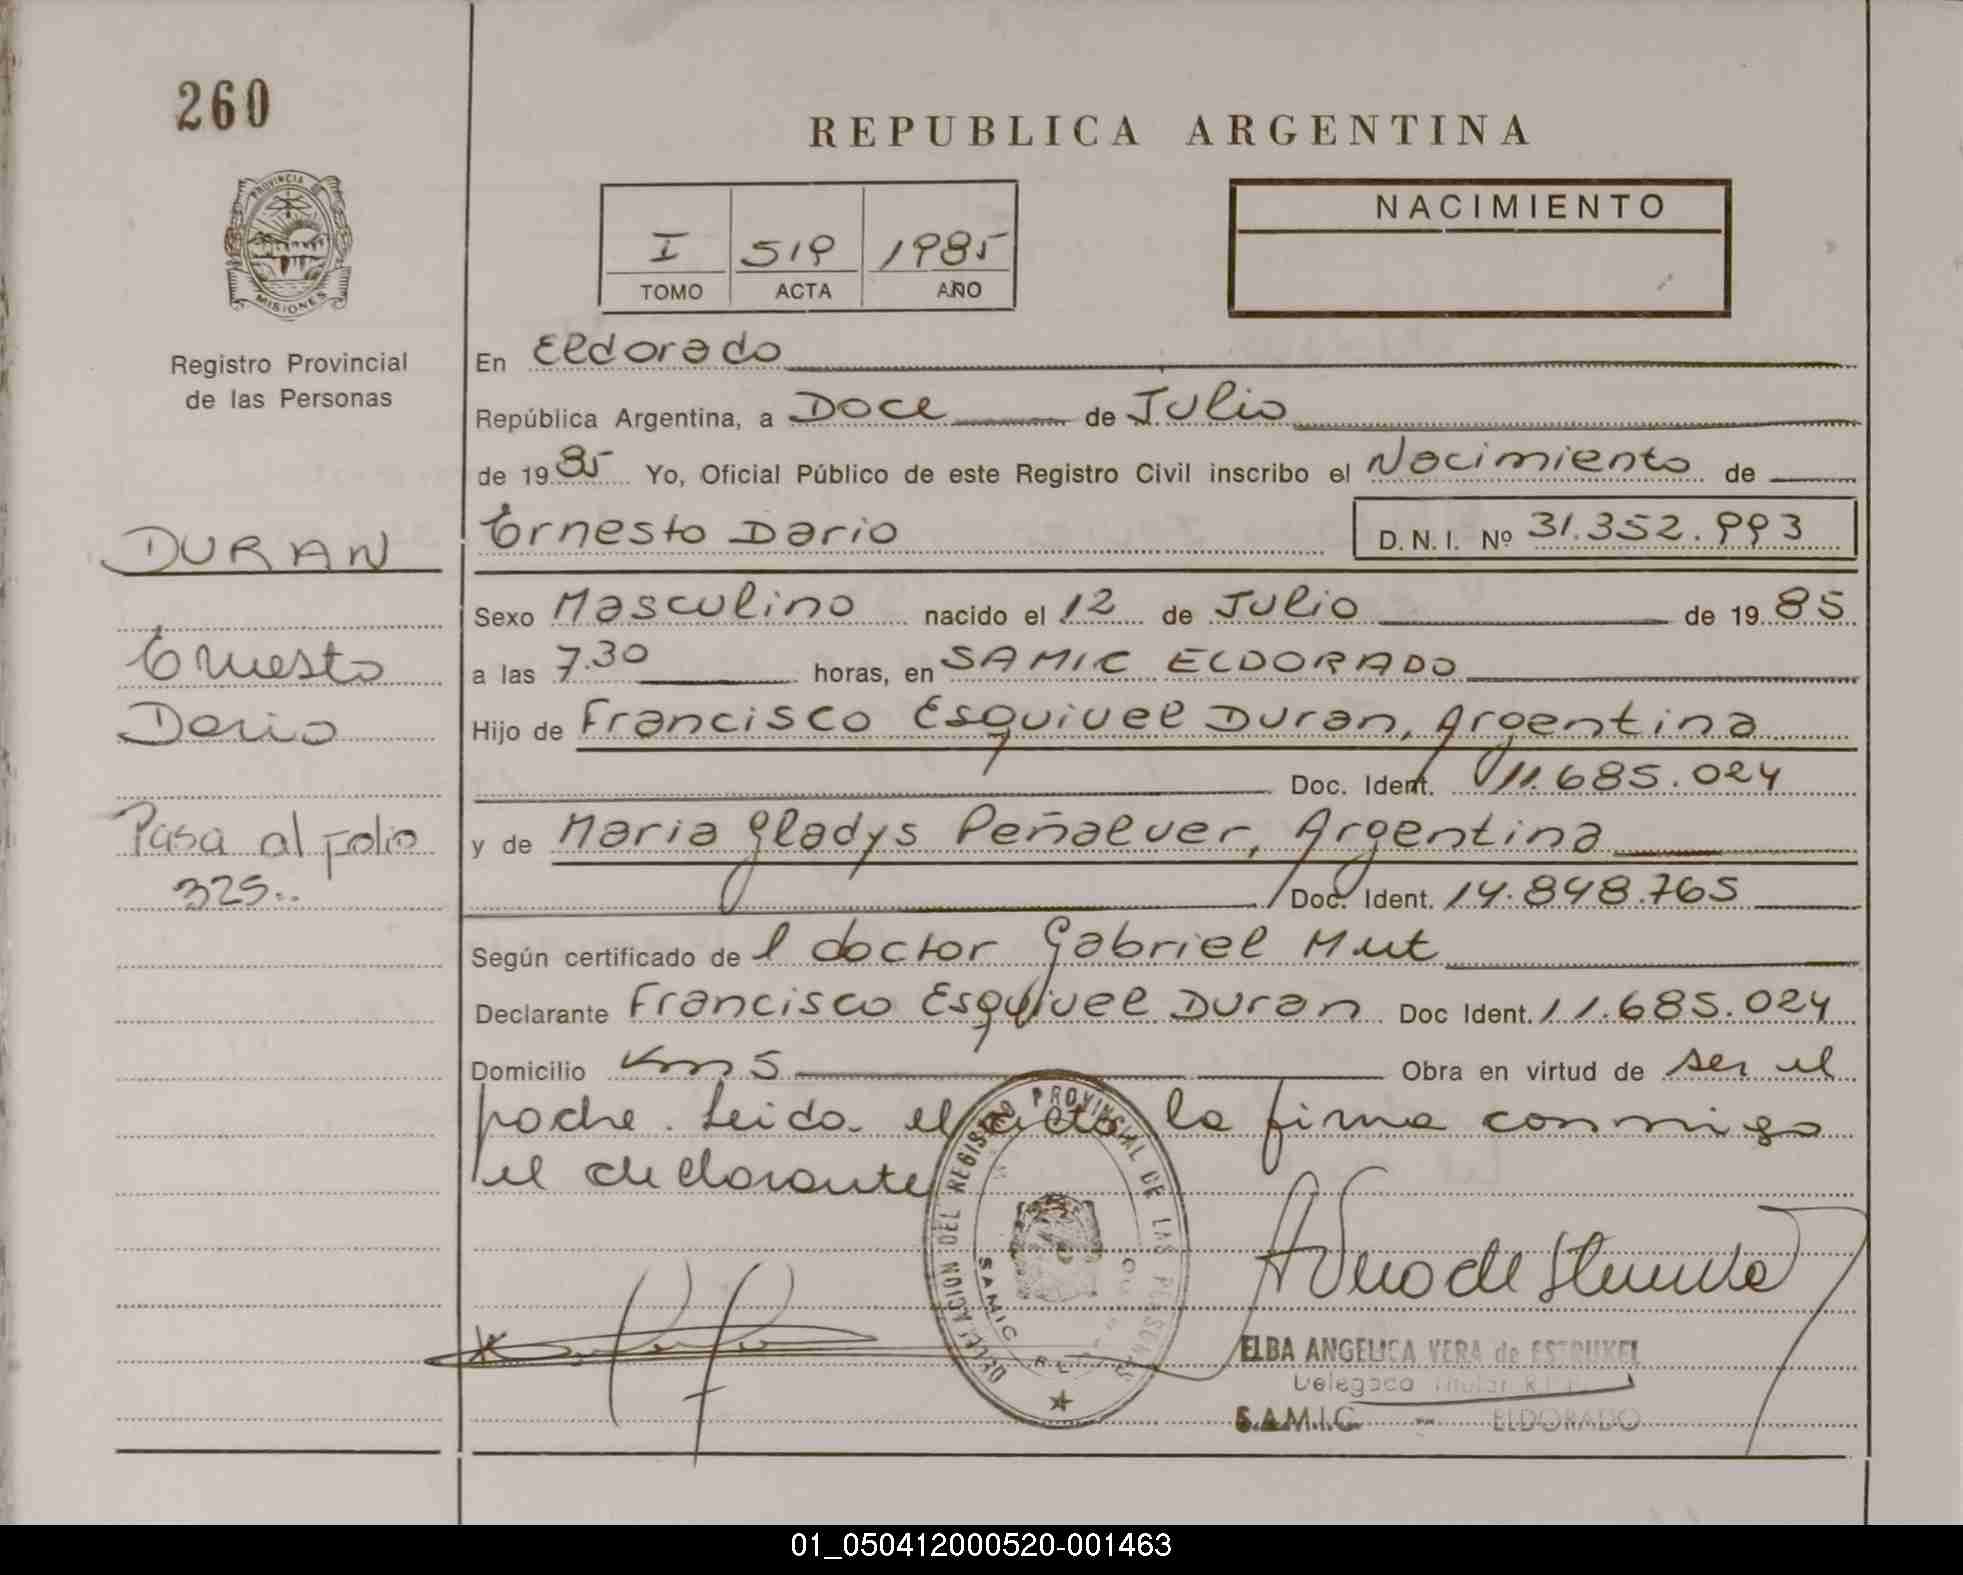 260
REPUBLICA ARGENTINA
PROVINCIA DE
MISIONES
Registro Provincial
de las Personas
I 519 1985
TOMO ACTA AÑO
NACIMIENTO
En Eldorado
República Argentina, a Doce de Julio
de 19 85 Yo, Oficial Público de este Registro Civil inscribo el Nacimiento de
DURAN
Ernesto Dario D. N. I. Nº 31.352.993
Sexo Masculino nacido el 12 de Julio de 19 85
Ernesto
a las 7.30 horas, en SAMIC ELDORADO
Dario
Hijo de Francisco Esquivel Duran, Argentina
Doc. Ident. 11.685.024
Pasa al folio
325..
y de Maria Gladys Peñalver, Argentina
Doc. Ident. 14.848.765
Según certificado de l doctor Gabriel Mut
Declarante Francisco Esquivel Duran Doc Ident. 11.685.024
Domicilio Km 5 Obra en virtud de ser el
padre. Leida el acta la firma conmigo
el declarante
DELEGACION DEL REGISTRO PROVINCIAL DE LAS PERSONAS
SAMIC
ELBA ANGELICA VERA de ESTRUKEL
Delegada Titular
S.A.M.I.C. - ELDORADO
01_050412000520-001463